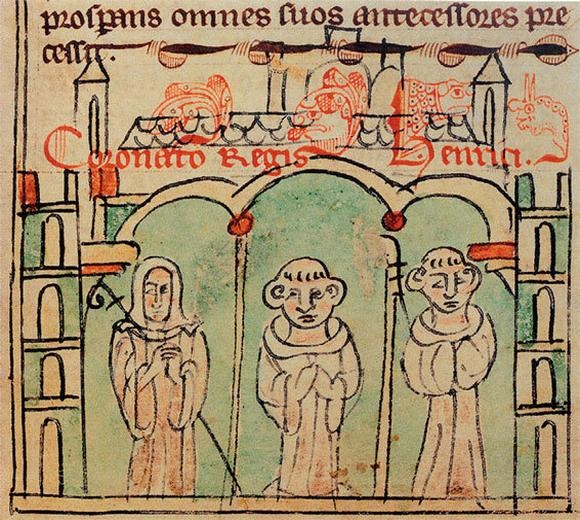 prosꝑans omnes suos antecessores pre
cessit.
Coronato Regis Henrici.